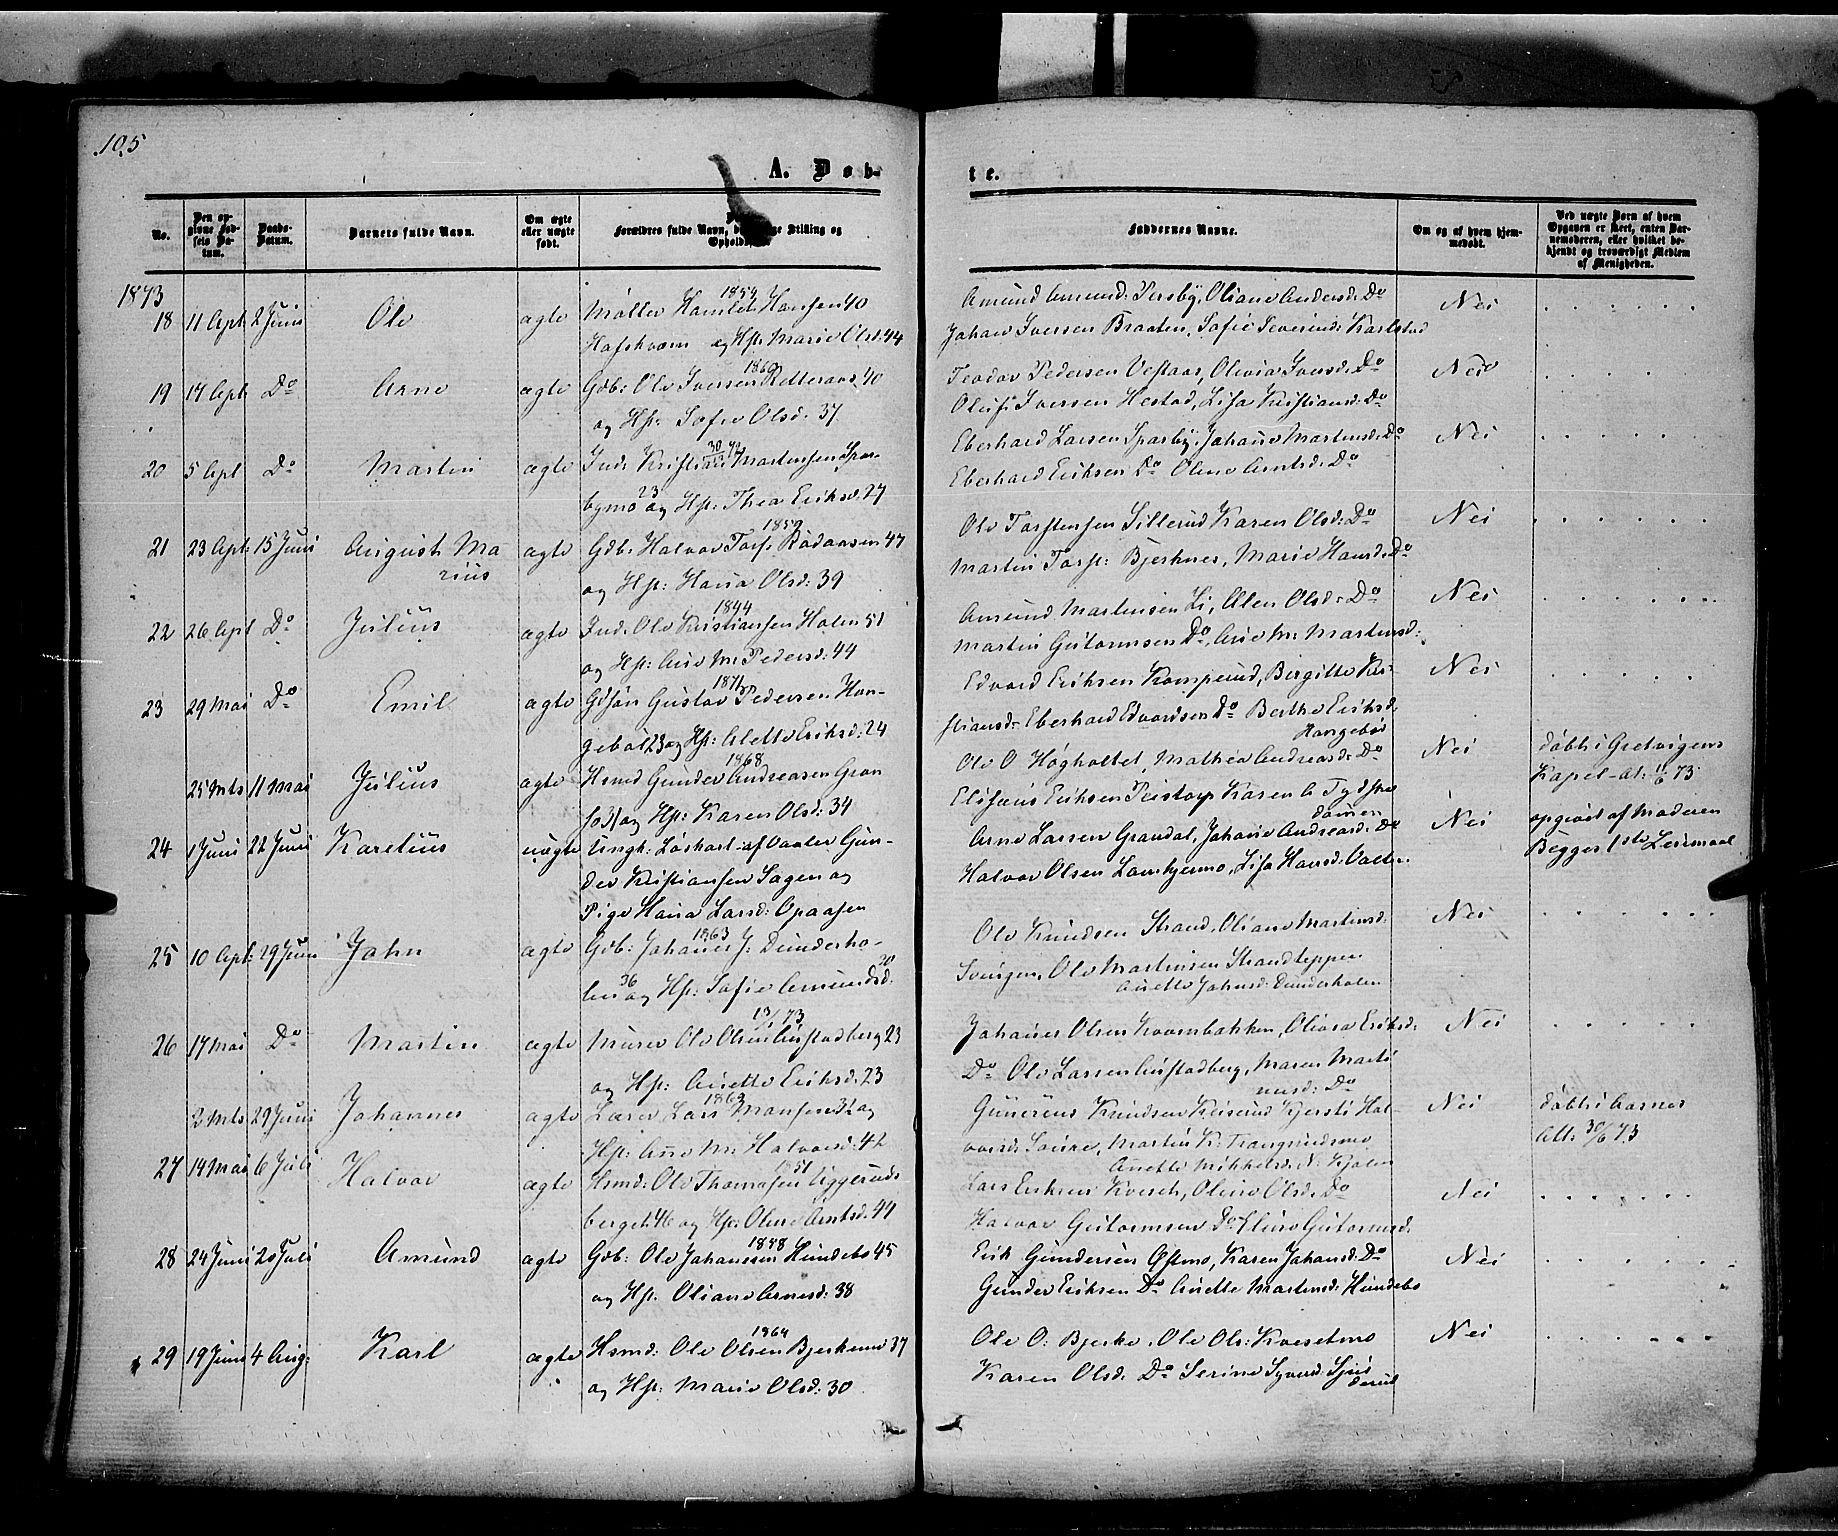 105
A. Døb-
te.
No.
Den op-
givne Fød-
sels Da-
tum.
Daabs-
Datum.
Barnets fulde Navn.
Om ægte
eller uægte
født.
Forældres fulde Navn, Stilling og
Faddernes Navne.
Om og af hvem hjem-
medøbt.
Ved uægte Børn af hvem
Opgaven er skeet, enten Bar-
nemoderen, eller hvilket be-
kjendt og troværdigt Medlem
af Menigheden.
1873
18 11 Apl 2 Juni Ole ægte Møller Hans Hansen 40
1859
og Hst: Marie Olsd: 44
Amund Amund: Persby, Oliane Andersd: Do
Johan Iversen Braaten, Sofie Severind: Karlstad
Nei
19 17 Apl Do Arne ægte Gdb: Ole Iversen 40
1860
og Hst: Sofie Olsd: 37
Teodor Pedersen Vestaas, Olivia Iversd: Do
Oluf Iversen Hestad, Lisa Kristiansd: Do
Nei
20 5 Apl Do Martin ægte Ind: Kristian Martinsen Spar-
bymo 23 og Hst: Thea Eriksd: 27
Eberhard Larsen Sparby, Johane Martinsd: Do
Eberhard Eriksen Do Oline Arntsd: Do
Nei
21 23 Apl: 15 Juni August Ma-
rius
ægte Gdb: Halvor Torst: Rødaasen 47
1859
og Hst: Hana Olsd: 39
Ole Torstensen Sillerud Karen Olsd: Do
Martin Torst: Bjerknes, Marie Hansd: Do
Nei
22 26 Apl Do Julius ægte Ind: Ole Kristiansen Holen 51
1844
og Hst: Ane M: Pedersd: 44
Amund Martinsen Li, Olen Olsd: Do
Martin Gutormsen Do, Ane M: Martinsd:
Nei
23 29 Mai Do Emil ægte Gustav Pedersen Han-
gebøl 23 og Hst: Alette Eriksd: 24
Edvard Eriksen Kamperud, Birgitte Kri-
stiansd: Eberhard Edvardsen Do Berthe Eriksd:
Hangebøl
Nei
25 Mts 11 Mai Julius ægte Hsmd Gunder Andreasen Gran
1868
31 og Hst: Karen Olsd: 34
Ole O Høgholtet, Mathea Andreasd: Do
Elisæus Eriksen Peistorp Karen
Nei
døbt i Gretvigens
Kapel
24 1 Juni 22 Juni Karelius uægte Ungk: Løskarl af Vaaler Gun-
der Kristiansen Sagen og
Pige Hana Larsd: Opaasen
Arne Larsen Grandal, Johane Andreasd: Do
Halvor Olsen Lauvhjermo, Lisa Hansd:
Nei
opgivet af Moderen
Begges 1ste Leiermaal
25 10 Apl: 29 Juni John ægte Gdb: Johanes J: Dunderho-
1863
len 36 og Hst: Sofie Amundsd: 30
Ole Knudsen Strand, Oliane Martinsd:
Svingen, Ole Martinsen Strandteppen
Anette Johnsd: Dunderholen
Nei
26 17 Mai Do Martin ægte Murer Ole Olsen Austadberg 23
13/1 73
og Hst: Anette Eriksd: 23
Johanes Olsen Kvernbakken, Olivia Eriksd:
Do Ole Larsen Austadberg, Maren Marti
nusd: Do
Nei
2 Mts 29 Juni Johannes ægte Lærer Lars Monsen 32 og
Hst: Ane M: Halvorsd: 42
Gunerius Knudsen Keiserud Kjersti Hal-
vorsd: Martin K: Trangsrudsmo
Anette Mikkelsd: N: Kjølen
Nei
døbt i Aasnes
Att: 30/6 73
27 14 Mai 6 Juli Halvor ægte Hsmd: Ole Thomasen Uggeruds
1851
berget 46 og Hst: Oline Arntsd: 44
Lars Eriksen Kveset, Oline Olsd: Do
Halvor Gutormsen Do Eline Gutormsd:
Nei
28 24 Juni 20 Juli Amund ægte Gdb: Ole Johansen Hundebo 45
og Hst: Oliane Arnesd: 38
Erik Gundersen Østmo, Karen Johansd: Do
Gunder Eriksen Do Anette Martinsd: Hundebo
Nei
29 19 Juni 4 Aug: Karl ægte Hsmd: Ole Olsen Bjerkemo 37
1864
og Hst: Marie Olsd: 30
Ole O: Bjerke, Ole Ols: Kvesetmo
Karen Olsd: Do Serine Syvers:
Nei